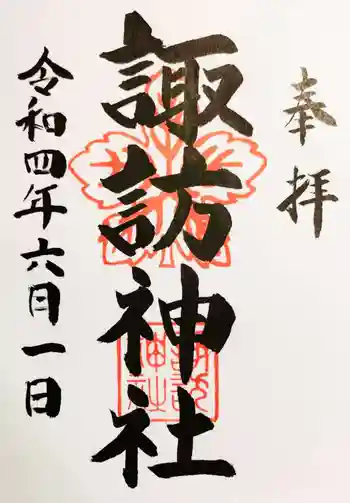 奉拝
諏訪神社
諏訪
神社
令和四年六月一日